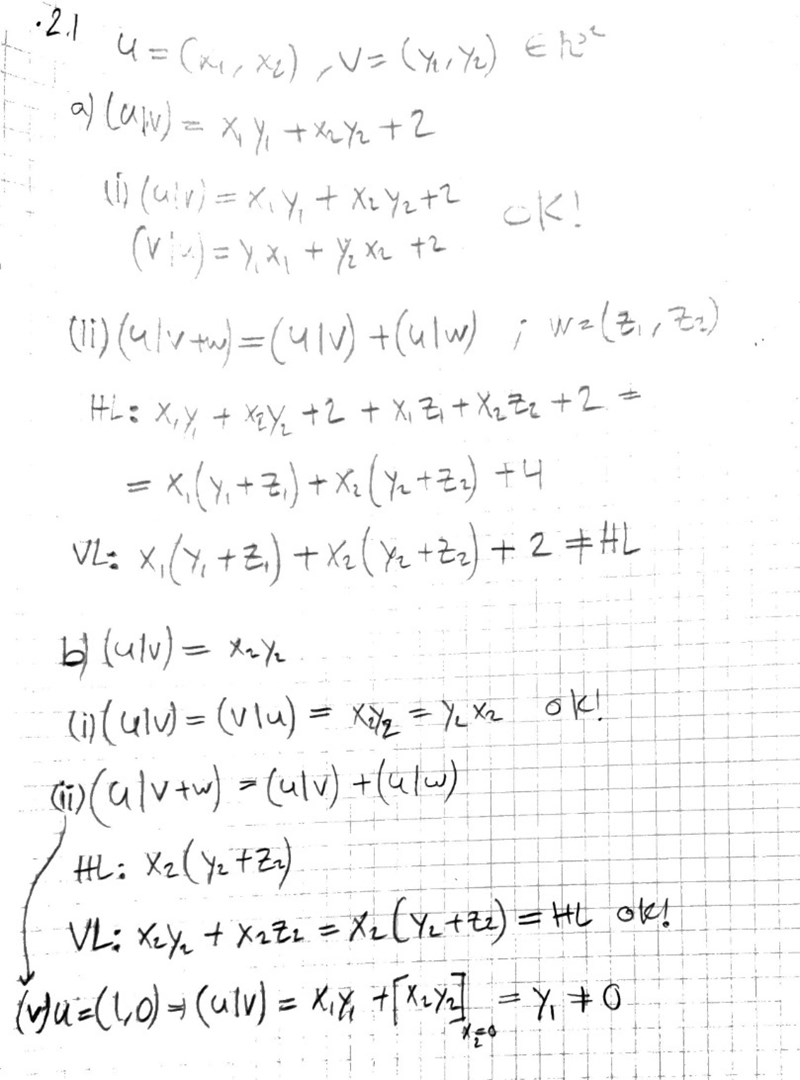 ·2.1
u = (x₁, x₂), v = (y₁, y₂) ∈ ℝ²
a) (u|v) = x₁y₁ + x₂y₂ + 2
(i) (u|v) = x₁y₁ + x₂y₂ + 2 OK!
(v|u) = y₁x₁ + y₂x₂ + 2
(ii) (u|v+w) = (u|v) + (u|w) ; w = (z₁, z₂)
HL: x₁y₁ + x₂y₂ + 2 + x₁z₁ + x₂z₂ + 2 =
= x₁(y₁+z₁) + x₂(y₂+z₂) + 4
VL: x₁(y₁+z₁) + x₂(y₂+z₂) + 2 ≠ HL
b) (u|v) = x₂y₂
(i) (u|v) = (v|u) = x₂y₂ = y₂x₂ ok!
(ii) (u|v+w) = (u|v) + (u|w)
HL: x₂(y₂+z₂)
VL: x₂y₂ + x₂z₂ = x₂(y₂+z₂) = HL ok!
(v) u = (1,0) ⇒ (u|v) = x₁y₁ + [x₂y₂]ₓ₂₌₀ = y₁ ≠ 0